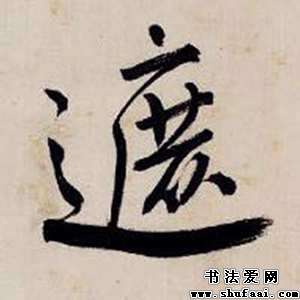 遮
书法爱网
www.shufaai.com